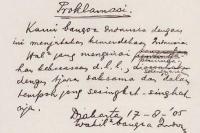 Proklamasi.
Kami bangsa Indonesia dengan
ini menjatakan kemerdekaan Indonesia.
Hal² jang mengenai
kekoeasaan d.l.l.,
dengan tjara saksama dan dalam
tempoh jang sesingkat-singkat
nja.
Djakarta 17 - 8 - '05
Wakil² bangsa Indon